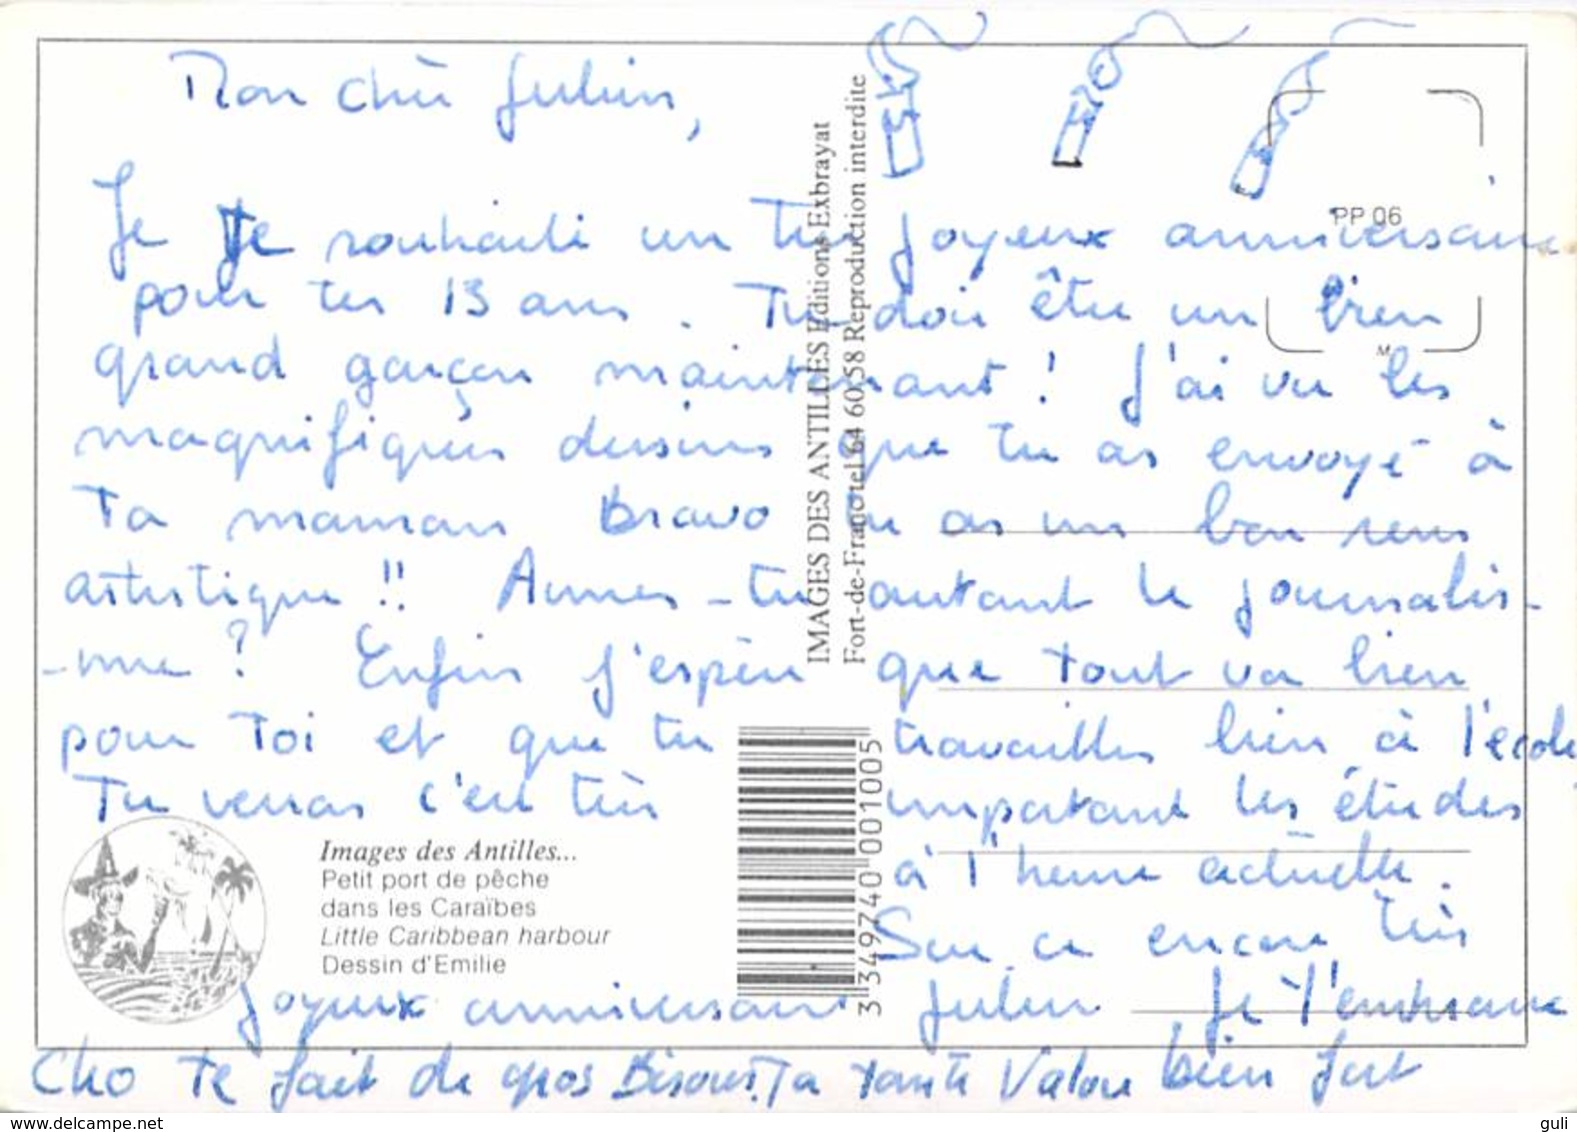 Mon cher Julien,
Je te souhaite un très joyeux anniversaire
pour tes 13 ans. Tu dois être un bien
grand garçon maintenant ! J'ai vu les
magnifiques dessins que tu as envoyé à
ta maman Bravo tu as un bon sens
artistique !! Aimes-tu autant le journalis-
-me ? Enfin j'espère que tout va bien
pour toi et que tu travailles bien à l'école
Tu verras c'est très important les études
à l'heure actuelle.
Sur ce encore très
joyeux anniversaire Julien Je t'embrasse
bien fort
Cho te fait de gros Bisous. Ta tante Valou
IMAGES DES ANTILLES Editions Exbrayat
Fort-de-France tel 64 60 58 Reproduction interdite
PP 06
M
Images des Antilles...
Petit port de pêche
dans les Caraïbes
Little Caribbean harbour
Dessin d'Emilie
3 349740 001005
www.delcampe.net
guli